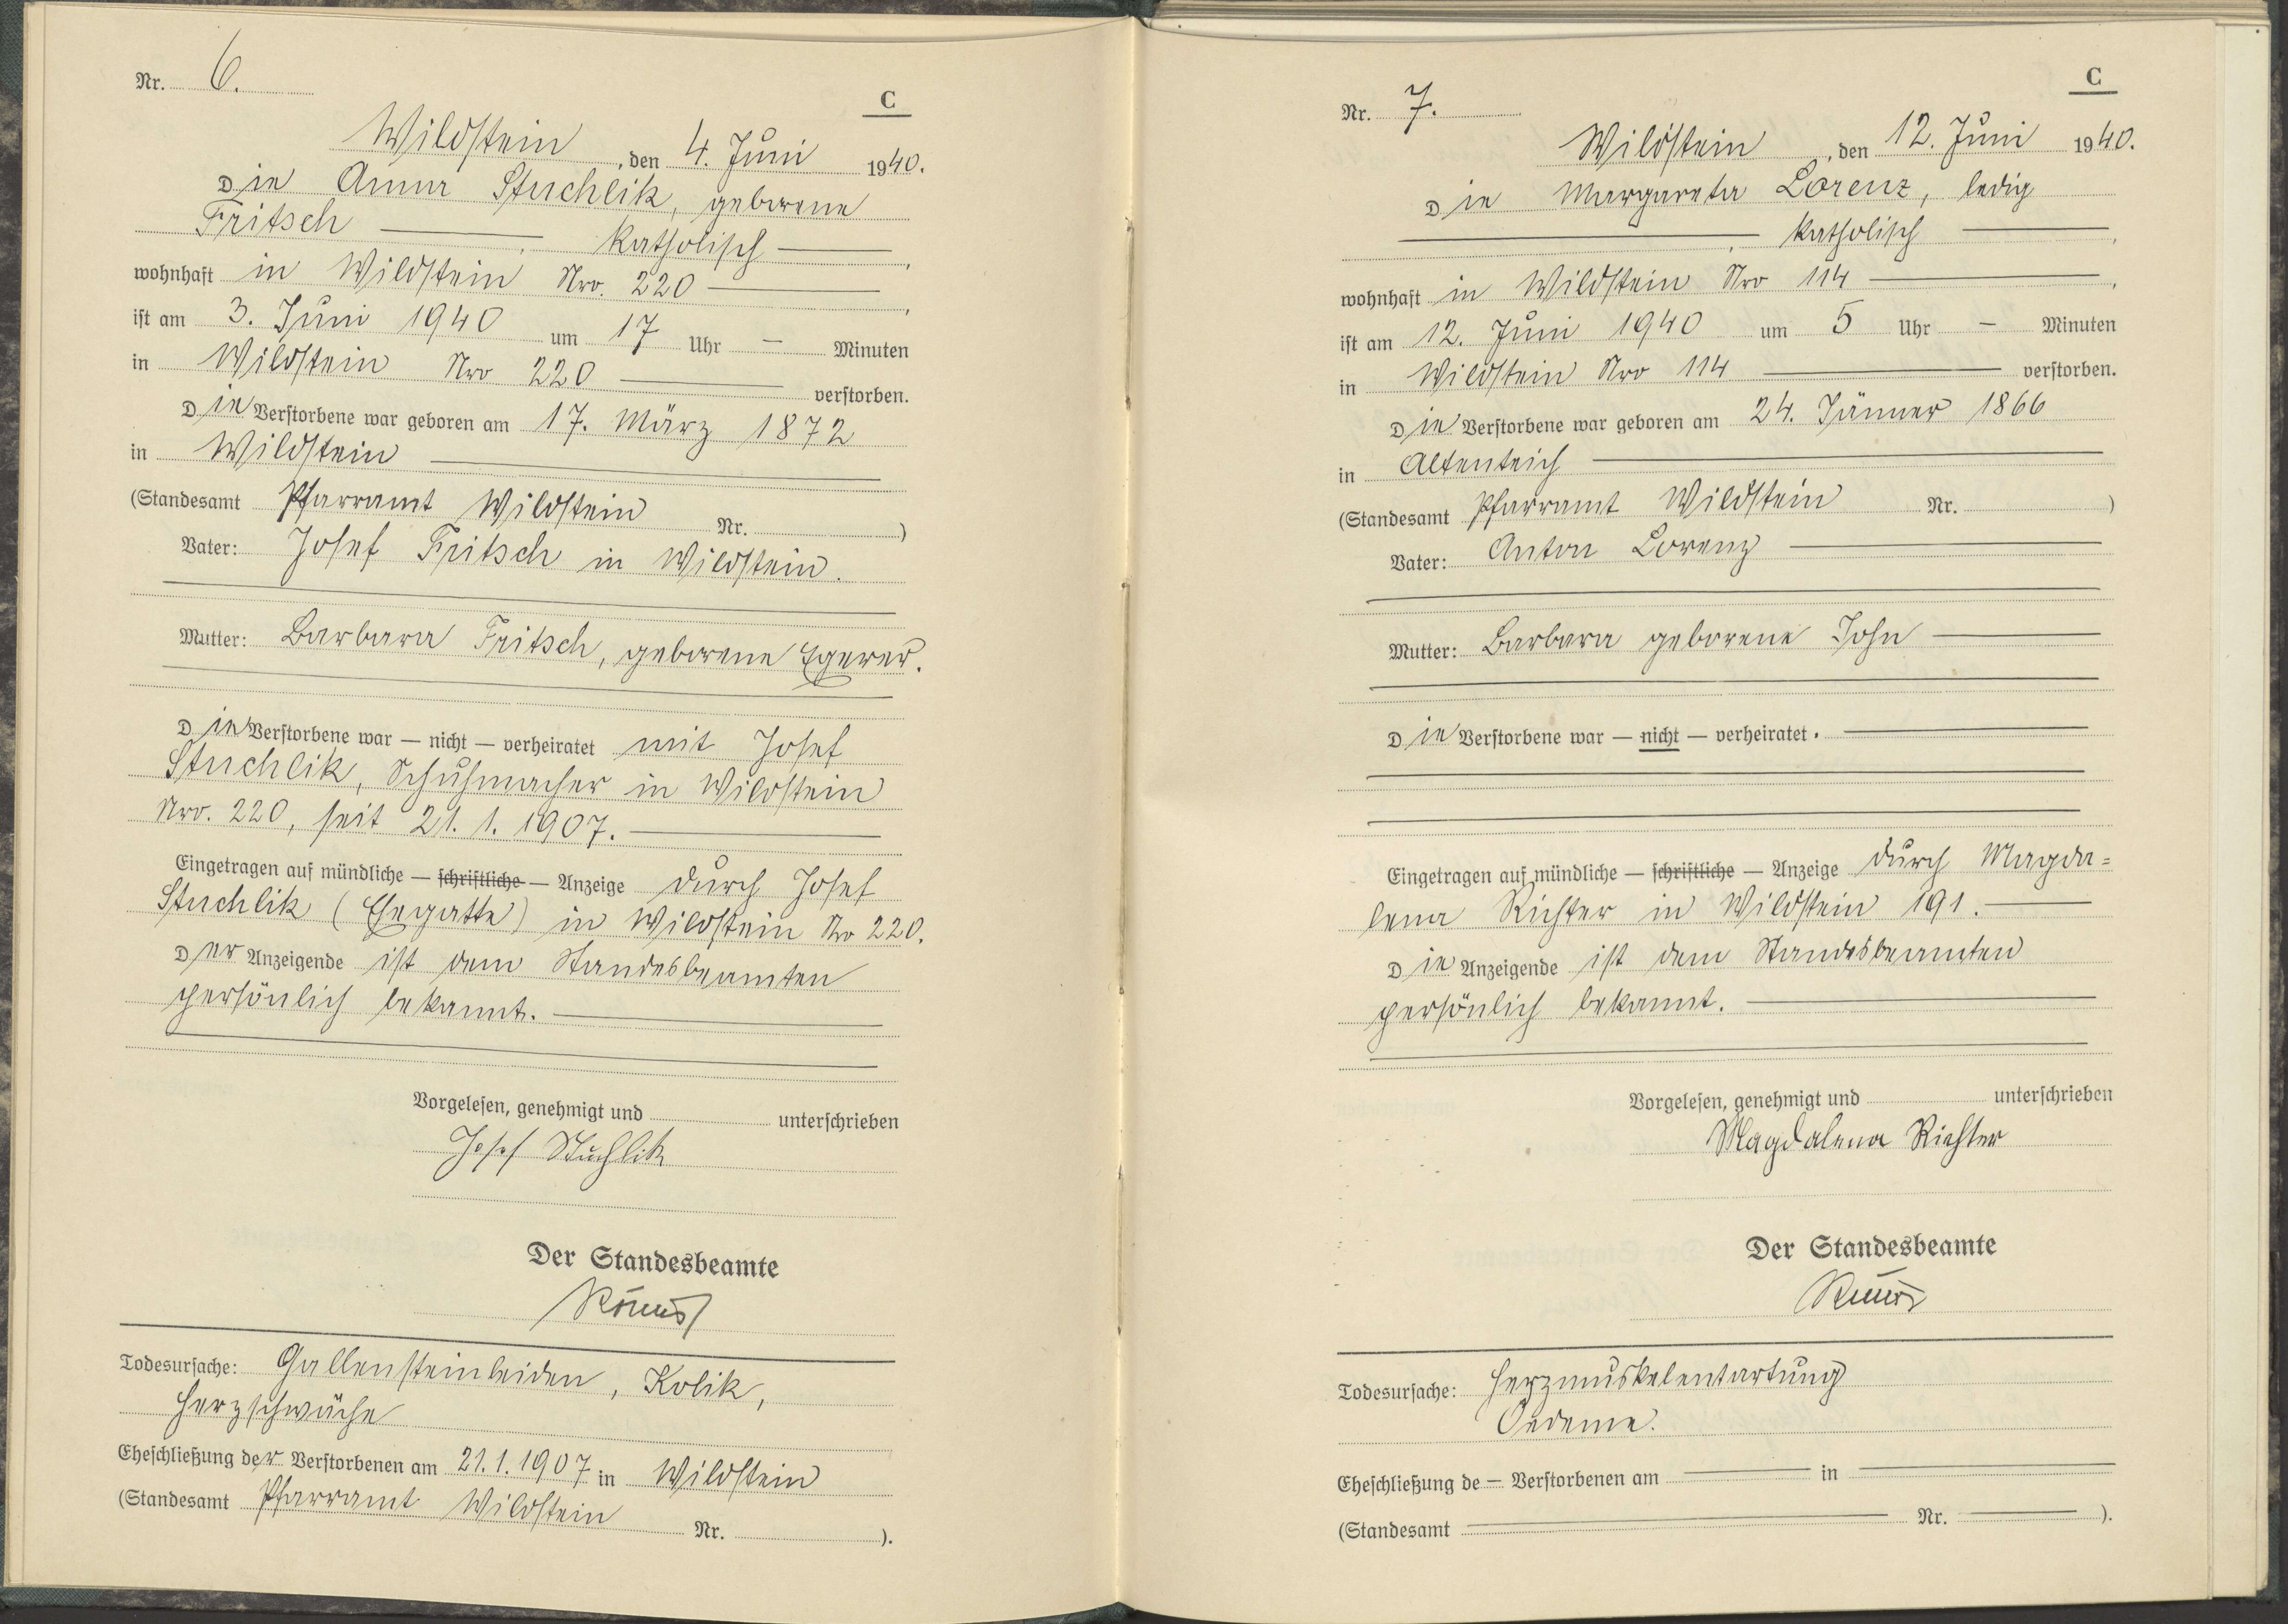 Nr. 6.
C
Wildstein, den 4. Juni 1940.
Die Anna Stuchlik, geborene
Fritsch, katholisch,
wohnhaft in Wildstein Nro. 220,
ist am 3. Juni 1940 um 17 Uhr — Minuten
in Wildstein Nro 220 verstorben.
Die Verstorbene war geboren am 17. März 1872
in Wildstein
(Standesamt Pfarramt Wildstein Nr. )
Vater: Josef Fritsch in Wildstein.
Mutter: Barbara Fritsch, geborene Egerer.
Die Verstorbene war — nicht — verheiratet mit Josef
Stuchlik, Schuhmacher in Wildstein
Nro. 220, seit 21. 1. 1907.
Eingetragen auf mündliche — schriftliche — Anzeige durch Josef
Stuchlik (Ehegatte) in Wildstein Nro 220.
Der Anzeigende ist dem Standesbeamten
persönlich bekannt.
Vorgelesen, genehmigt und unterschrieben
Josef Stuchlik
Der Standesbeamte
Todesursache: Gallensteinleiden, Kolik,
Herzschwäche
Eheschließung der Verstorbenen am 21. 1. 1907 in Wildstein
(Standesamt Pfarramt Wildstein Nr. ).
Nr. 7.
C
Wildstein, den 12. Juni 1940.
Die Margareta Lorenz, ledig
, katholisch,
wohnhaft in Wildstein Nro 114,
ist am 12. Juni 1940 um 5 Uhr — Minuten
in Wildstein Nro 114 verstorben.
Die Verstorbene war geboren am 24. Jänner 1866
in Altenteich
(Standesamt Pfarramt Wildstein Nr. )
Vater: Anton Lorenz
Mutter: Barbara geborene John
Die Verstorbene war — nicht — verheiratet.
Eingetragen auf mündliche — schriftliche — Anzeige durch Magda=
lena Richter in Wildstein 191.
Die Anzeigende ist dem Standesbeamten
persönlich bekannt.
Vorgelesen, genehmigt und unterschrieben
Magdalena Richter
Der Standesbeamte
Todesursache: Herzmuskelentartung
Oedeme.
Eheschließung de — Verstorbenen am — in —
(Standesamt — Nr. — ).